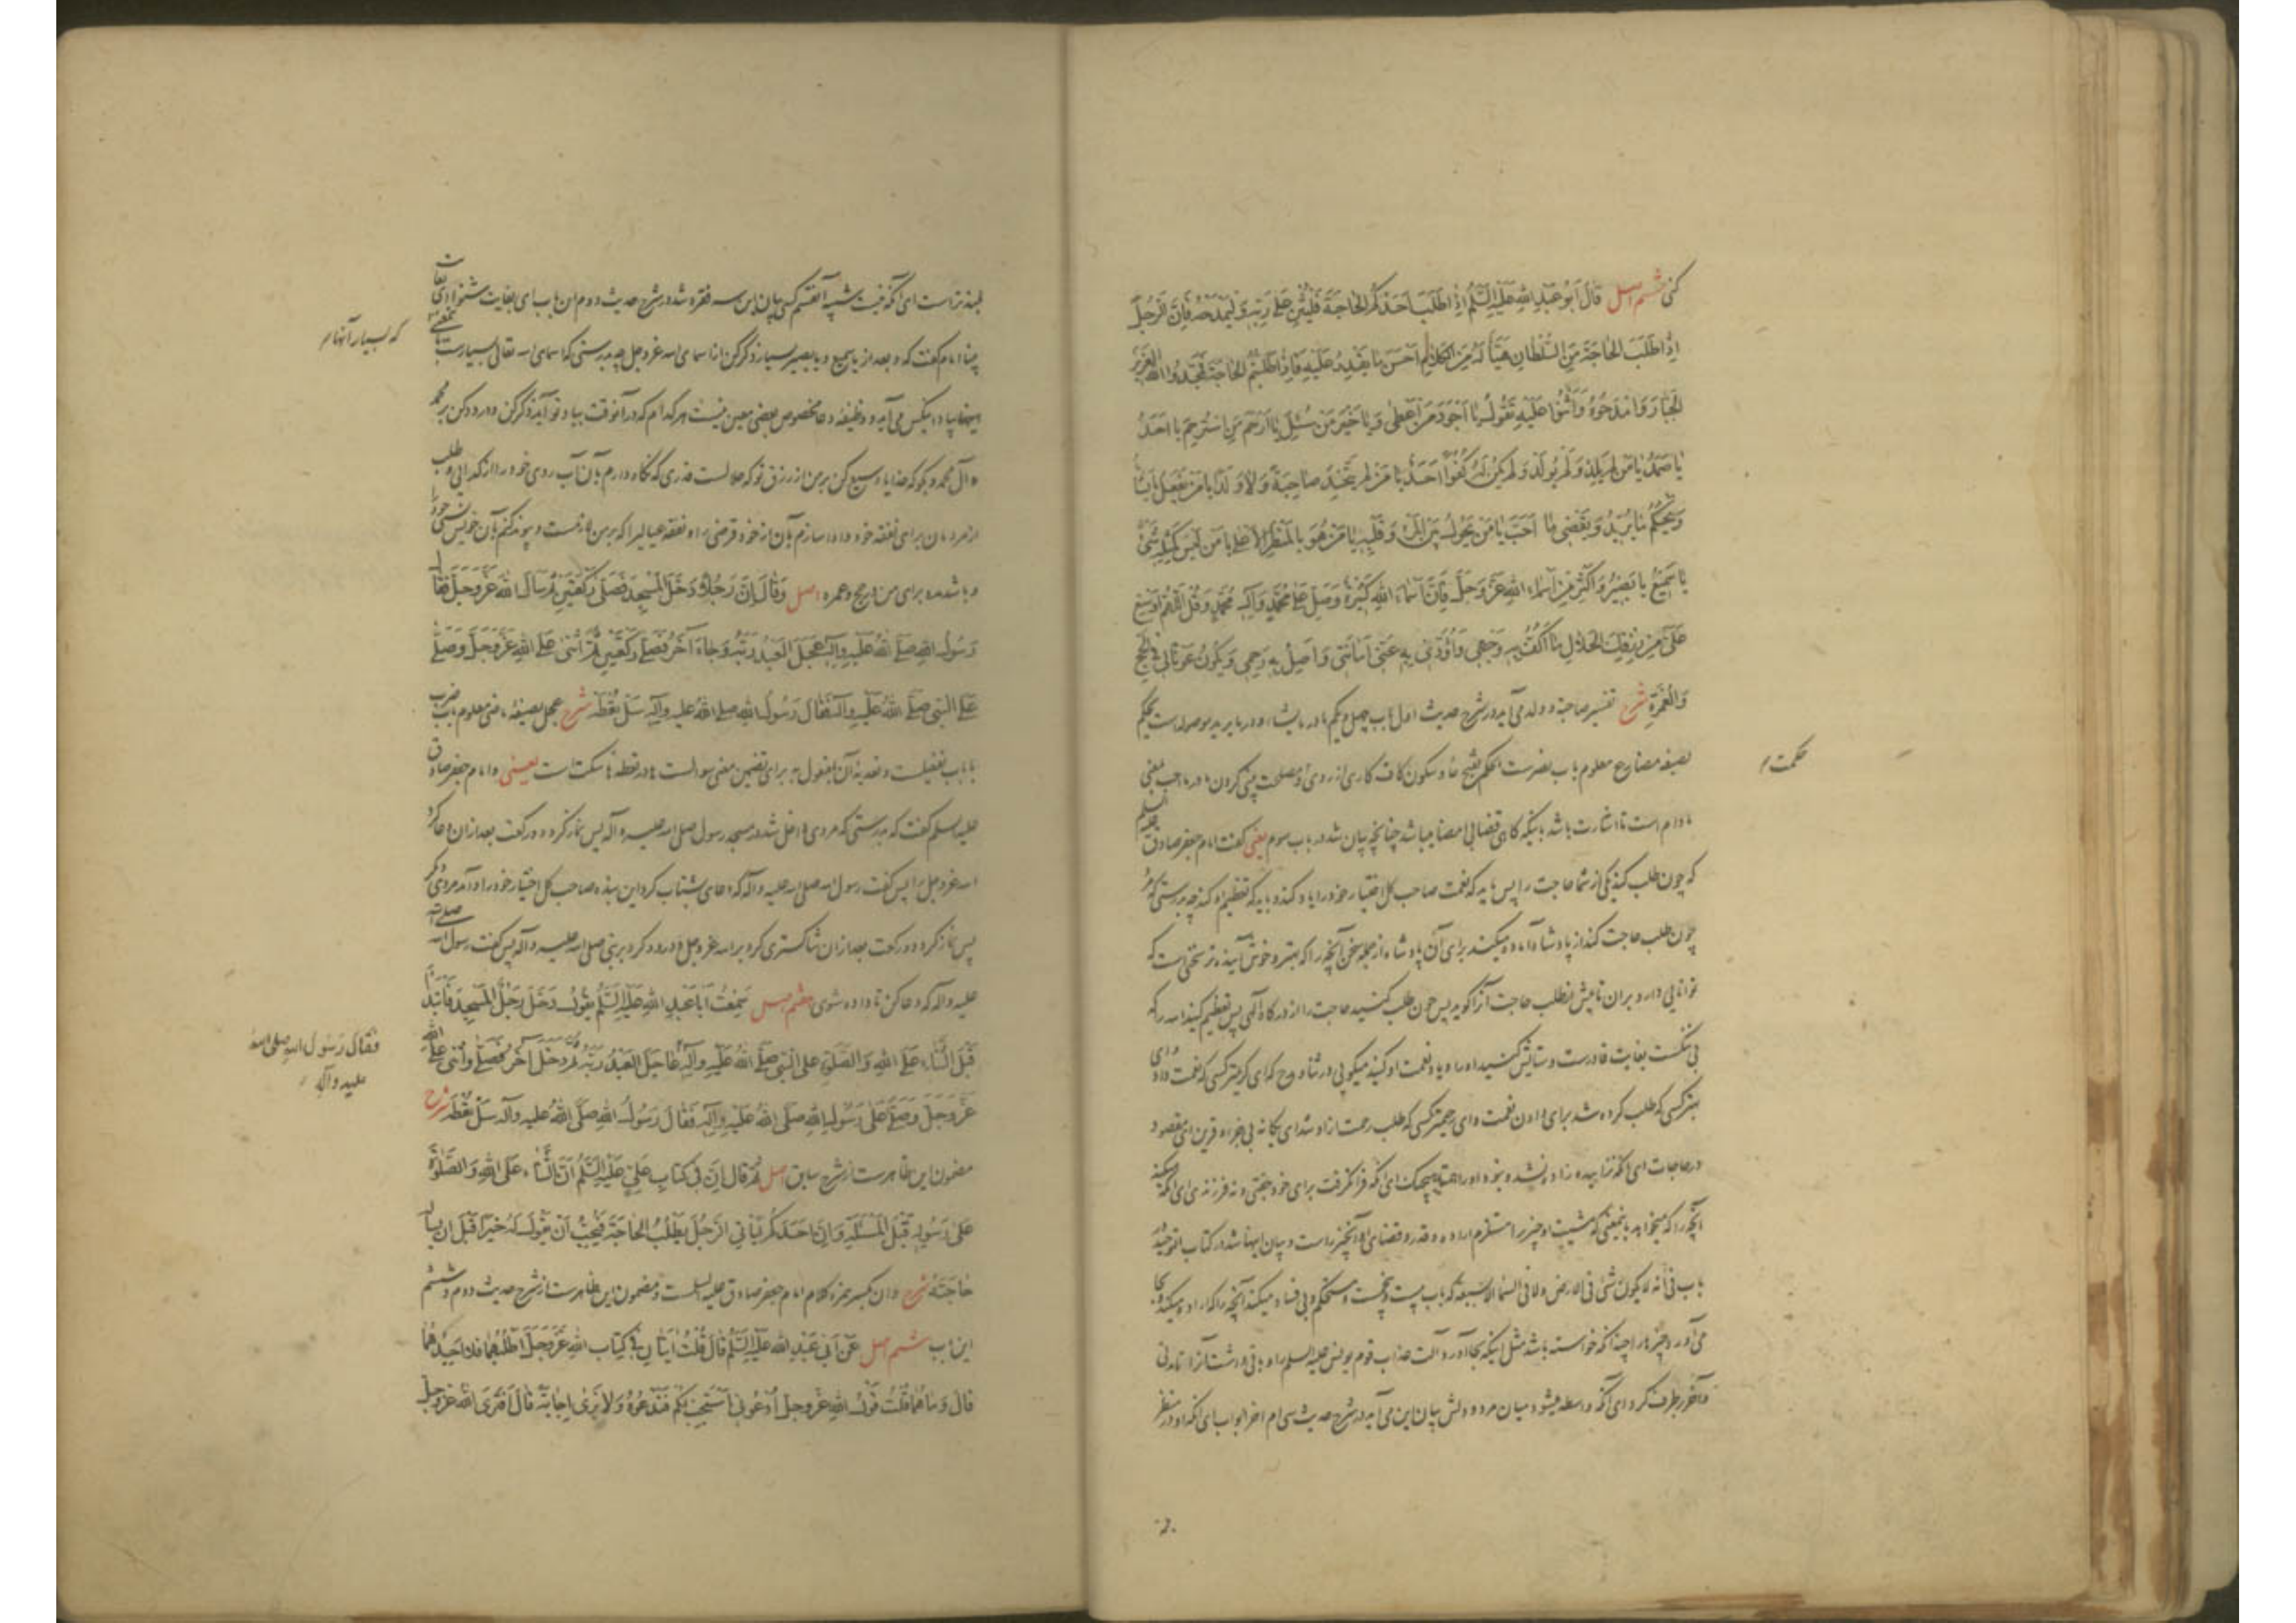 کنی ششم اصل قَالَ أَبُو عَبْدِ اللهِ عَلَيْهِ السَّلَمُ إِذَا طَلَبَ أَحَدُكُمُ الْحَاجَةَ فَلْيُثْنِ عَلَى رَبِّهِ وَلْيَمْدَحْهُ فَإِنَّ الرَّجُلَ
إِذَا طَلَبَ الْحَاجَةَ مِنَ السُّلْطَانِ هَيَّأَ لَهُ مِنَ الْكَلَامِ أَحْسَنَ مَا يَقْدِرُ عَلَيْهِ فَإِذَا طَلَبْتُمُ الْحَاجَةَ فَمَجِّدُوا اللهَ الْعَزِيزَ
الْجَبَّارَ وَامْدَحُوهُ وَأَثْنُوا عَلَيْهِ تَقُولُ يَا أَجْوَدَ مَنْ أَعْطَى وَيَا خَيْرَ مَنْ سُئِلَ يَا أَرْحَمَ مَنِ اسْتُرْحِمَ يَا أَحَدُ
يَا صَمَدُ يَا مَنْ لَمْ يَلِدْ وَلَمْ يُولَدْ وَلَمْ يَكُنْ لَهُ كُفُوًا أَحَدٌ يَا مَنْ لَمْ يَتَّخِذْ صَاحِبَةً وَلَا وَلَدًا يَا مَنْ يَفْعَلُ مَا يَشَاءُ
وَيَحْكُمُ مَا يُرِيدُ وَيَقْضِي مَا أَحَبَّ يَا مَنْ يَحُولُ بَيْنَ الْمَرْءِ وَقَلْبِهِ يَا مَنْ هُوَ بِالْمَنْظَرِ الْأَعْلَى يَا مَنْ لَيْسَ كَمِثْلِهِ شَيْءٌ
يَا سَمِيعُ يَا بَصِيرُ وَأَكْثِرْ مِنْ أَسْمَاءِ اللهِ عَزَّ وَجَلَّ فَإِنَّ أَسْمَاءَ اللهِ كَثِيرَةٌ وَصَلِّ عَلَى مُحَمَّدٍ وَآلِ مُحَمَّدٍ وَقُلِ اللَّهُمَّ أَوْسِعْ
عَلَيَّ مِنْ رِزْقِكَ الْحَلَالِ مَا أَكُفُّ بِهِ وَجْهِي وَأُؤَدِّي بِهِ عَنِّي أَمَانَتِي وَأَصِلُ بِهِ رَحِمِي وَيَكُونُ عَوْنًا لِي فِي الْحَجِّ
وَالْعُمْرَةِ شرح تفسیر صاحبة و ولد می آید در شرح حدیث اول باب چهل و یکم ما در ما یشاء و در ما یرید موصوله است یحکم
بصیغه مضارع معلوم باب نصرست الحکم بضم حا و سکون کاف کاری از روی و مصلحت پنی کردن ما در ما احب بمعنی
حکمت
مادام است تا اشارت باشد باینکه گاهی قضا بی امضا میباشد چنانچه بیان شد در باب سوم یعنی گفت امام جعفر صادق علیه السلم
که چون طلب کند یکی از شما حاجت را پس باید که نعمت صاحب کل اختیار خود را یاد کند و باید که تعظیم او کند چه بدرستی که مرد
چون طلب حاجت کند از پادشاه آماده میکند برای آن پادشاه از جمله سخن آنچه را که بهتر و خوش آینده تر سخنی است که
توانایی دارد بران تا پیش از طلب حاجت آنرا گوید پس چون طلب کنید حاجت را از درگاه الهی پس تعظیم کنید الله را که
بی ننگست بغایت قادرست و ستایش کنید او را و یاد نعمت او کنید میگویی در ثنا و مدح که ای کریمتر کسی که نعمت داد و ای
بهتر کسی که طلب کرده شد برای دادن نعمت و ای رحیمتر کسی که طلب رحمت ازو شد ای یگانه بی همراه قرین ای مقصود
در حاجات ای آنکه نزاییده و زاده نشد و نبوده او را همتا هیچیک ای آنکه فرا نگرفت برای خود جفتی و نه فرزندی ای آنکه میکند
آنچه را که میخواهد بمعنی که مشیت او چیز را مستلزم اراده و قدر و قضای او آنچیز راست و بیان اینها شد در کتاب التوحید
باب فی انه لا یکون شیٔ فی الارض ولا فی السماء الا بسبعة که باب بیست و پنجست و مستحکم و بی فساد میکند آنچه را که اراده میکند و بجا
می آورد چیزها را چندانکه خواسته باشد مثل اینکه بجا آورد آلت عذاب قوم یونس علیه السلم را و باقی داشت آنرا تا مدتی
و آخر برطرف کرد ای آنکه واسطه میشود میان مرد و دلش بیان این می آید در شرح حدیث سی ام اخر ابواب ای آنکه او در منظر
بلند تر است ای آنکه نیست شبیه آنقسم کسی بیان این سه فقره شد در شرح حدیث دوم این باب ای بغایت شنوا ای بغایت
چنا امام گفت که و بعد از یا سمیع و یا بصیر بسیار ذکر کن از اسمای الله عز و جل چه بدرستی که اسمای الله تعالی بسیارست بمعنی
که بسیار آنها
اینها بیاد میکس می آید و وظیفه دعا مخصوص بعضی معین نیست هر کدام که در آنوقت بیاد تو آید ذکر کن و درود کن بر محمد
و آل محمد و بگو که خدایا وسیع کن بر من از رزق تو که حلالست قدری که نگاه دارم بآن آب روی خود را از گدایی و طلب
از مردمان برای نفقه خود و ادا سازم بآن از خود قرض را و نفقه عیال را که بر من لازمست و پیوند کنم بآن خویش نسبی خود را
و باشد مدد برای من در حج و عمره اصل وَقَالَ إِنَّ رَجُلًا دَخَلَ الْمَسْجِدَ فَصَلَّى رَكْعَتَيْنِ ثُمَّ سَأَلَ اللهَ عَزَّ وَجَلَّ فَقَالَ
رَسُولُ اللهِ صَلَّى اللهُ عَلَيْهِ وَآلِهِ عَجَّلَ الْعَبْدُ رَبَّهُ وَجَاءَ آخَرُ فَصَلَّى رَكْعَتَيْنِ ثُمَّ أَثْنَى عَلَى اللهِ عَزَّ وَجَلَّ وَصَلَّى
عَلَى النَّبِيِّ صَلَّى اللهُ عَلَيْهِ وَآلِهِ فَقَالَ رَسُولُ اللهِ صلى اللهُ عليه وآلِهِ سَلْ تُعْطَهْ شرح عجل بصیغه ماضی معلوم باب ضرب
یا باب تفعیلست و تعدیه آن بمفعول به برای تضمین معنی سوالست ها در تعطه ها سکت است یعنی و امام جعفر صادق
علیه السلم گفت که بدرستی که مردی داخل شد در مسجد رسول صلی الله علیه و آله پس نماز کرد دو رکعت بعد ازان دعا کرد
الله عز و جل را پس گفت رسول الله صلی الله علیه و آله که دعای بشتاب کرد این بنده صاحب کل اختیار خود را و آمد مردی دیگر
پس نماز کرد دو رکعت بعد ازان ثنا گستری کرد بر الله عز و جل و درود کرد بر نبی صلی الله علیه و آله پس گفت رسول الله صلی الله
علیه و آله که دعا کن تا داده شوی هفتم اصل سَمِعْتُ أَبَا عَبْدِ اللهِ عَلَيْهِ السَّلَمُ يَقُولُ دَخَلَ رَجُلٌ الْمَسْجِدَ فَابْتَدَأَ
قَبْلَ الثَّنَاءِ عَلَى اللهِ وَالصَّلَوةِ على النَّبِيِّ صَلَّى اللهُ عَلَيْهِ وَآلِهِ عَاجَلَ الْعَبْدُ رَبَّهُ ثُمَّ دَخَلَ آخَرُ فَصَلَّى وَأَثْنَى عَلَى اللهِ
فَقَالَ رَسُولُ اللهِ صلى الله
عليه وآله
عَزَّ وَجَلَّ وَصَلَّى عَلَى رَسُولِ اللهِ صَلَّى اللهُ عَلَيْهِ وَآلِهِ فَقَالَ رَسُولُ اللهِ صَلَّى اللهُ عليه وآله سَلْ تُعْطَهْ شرح
مضمون این ظاهرست از شرح سابق اصل ثُمَّ قَالَ إِنَّ فِي كِتَابِ عَلِيٍّ عَلَيْهِ السَّلَمُ أَنَّ الثَّنَاءَ عَلَى اللهِ وَالصَّلَوةَ
عَلَى رَسُولِهِ قَبْلَ الْمَسْئَلَةِ وَإِنَّ أَحَدَكُمْ لَيَأْتِي الرَّجُلَ يَطْلُبُ الْحَاجَةَ فَيُحِبُّ أَنْ يَقُولَ لَهُ خَيْرًا قَبْلَ أَنْ يَسْأَلَ
حَاجَتَهُ شرح و ان بکسر همزه کلام امام جعفر صادق علیه السلمست و مضمون این ظاهرست از شرح حدیث دوم و ششم
این باب هشتم اصل عَنْ أَبِي عَبْدِ اللهِ عَلَيْهِ السَّلَمُ قَالَ قُلْتُ آيَتَانِ فِي كِتَابِ اللهِ عَزَّ وَجَلَّ أَطْلُبُهُمَا فَلَا أَجِدُهُمَا
قَالَ وَمَا هُمَا قُلْتُ قَوْلُ اللهِ عَزَّ وَجَلَّ ادْعُونِي أَسْتَجِبْ لَكُمْ فَنَدْعُوهُ وَلَا نَرَى إِجَابَةً قَالَ أَفَتَرَى اللهَ عَزَّ وَجَلَّ